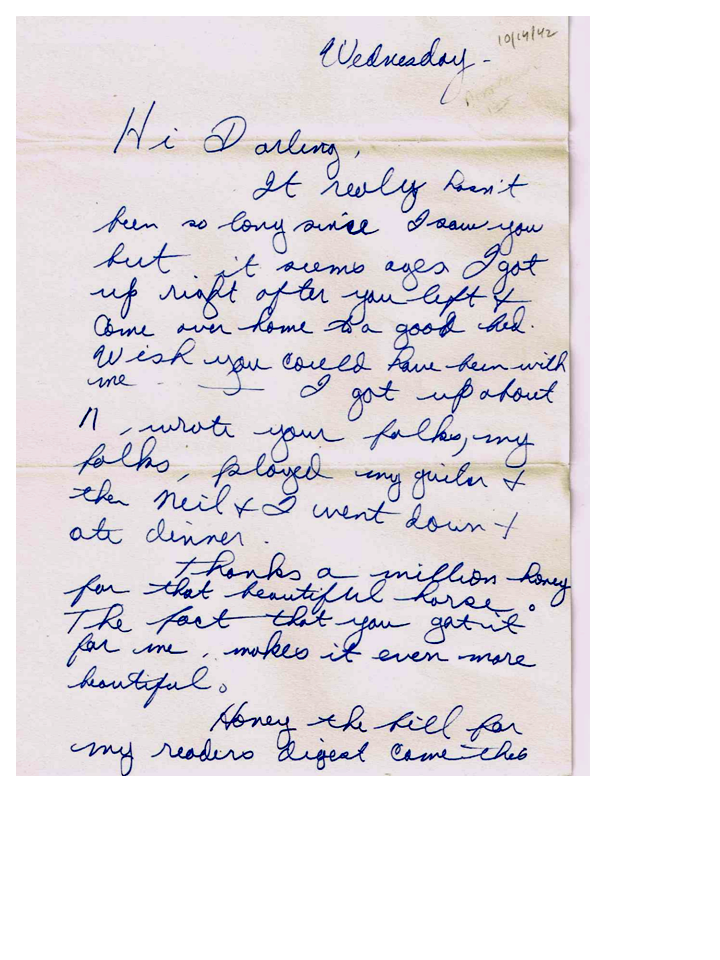 10/14/42
Wednesday -
Hi Darling,
It really hasn't
been so long since I saw you
but it seems ages. I got
up right after you left &
come over home to a good bed.
Wish you could have been with
me - I got up about
11, wrote your folks, my
folks, played my guitar &
then Neil & I went down &
ate dinner.
Thanks a million honey
for that beautiful horse.
The fact that you got it
for me, makes it even more
beautiful.
Honey the bill for
my readers digest come this